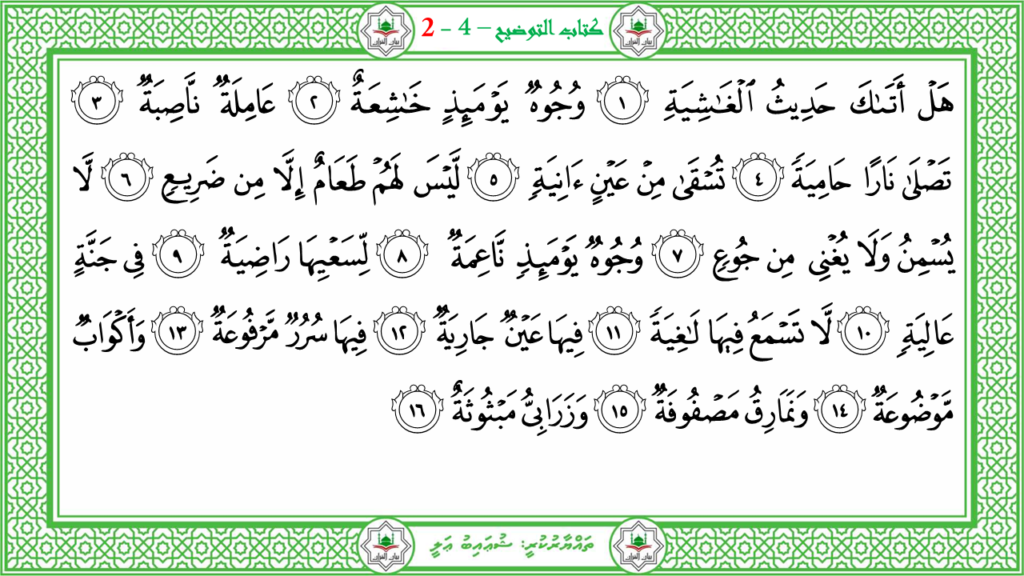 كتاب التوضيح – 4 - 2
هَلۡ أَتَىٰكَ حَدِيثُ ٱلۡغَٰشِيَةِ ١ وُجُوهٞ يَوۡمَئِذٍ خَٰشِعَةٌ ٢ عَامِلَةٞ نَّاصِبَةٞ ٣
تَصۡلَىٰ نَارًا حَامِيَةٗ ٤ تُسۡقَىٰ مِنۡ عَيۡنٍ ءَانِيَةٖ ٥ لَّيۡسَ لَهُمۡ طَعَامٌ إِلَّا مِن ضَرِيعٖ ٦ لَّا
يُسۡمِنُ وَلَا يُغۡنِي مِن جُوعٖ ٧ وُجُوهٞ يَوۡمَئِذٖ نَّاعِمَةٞ ٨ لِّسَعۡيِهَا رَاضِيَةٞ ٩ فِي جَنَّةٍ
عَالِيَةٖ ١٠ لَّا تَسۡمَعُ فِيهَا لَٰغِيَةٗ ١١ فِيهَا عَيۡنٞ جَارِيَةٞ ١٢ فِيهَا سُرُرٞ مَّرۡفُوعَةٞ ١٣ وَأَكۡوَابٞ
مَّوۡضُوعَةٞ ١٤ وَنَمَارِقُ مَصۡفُوفَةٞ ١٥ وَزَرَابِيُّ مَبۡثُوثَةٌ ١٦
ތައްޔާރުކުރީ: ޝުޢައިބު ޢަލީ